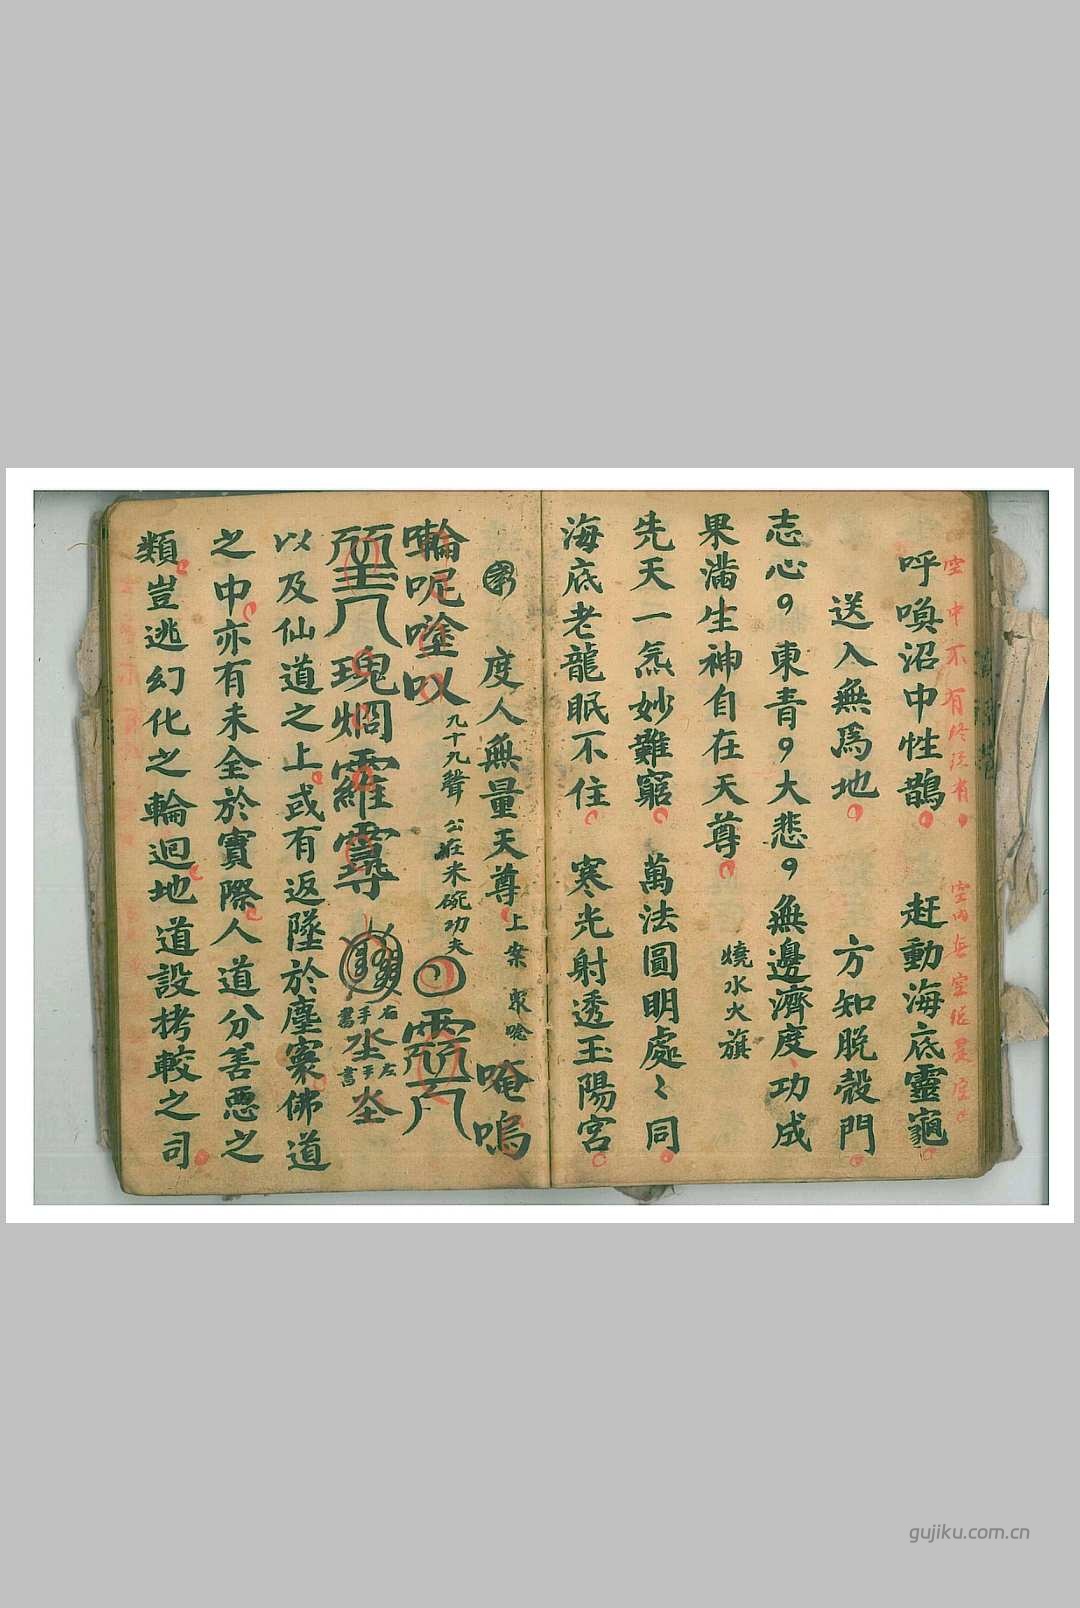 空中不有終沒有
空內無空從是空
呼喚沼中性鵲　赶動海底靈龜
送入無為地　方知脫殼門
志心９東青９大悲９無邊濟度、功成
果滿生神自在天尊　燒水火旗
先天一炁妙難窮　萬法圓明處〻同
海底老龍眠不住　寒光射透玉陽宮
度人無量天尊　上案　衆唸　唵嗚
㘄呢唑以　九十九聲　公在米碗功夫
瑰　羅　右手書　左手書
以及仙道之上或有返墜於塵寰佛道
之中亦有未全於實際人道分善惡之
類豈逃幻化之輪迴地道設拷較之司
gujiku.com.cn